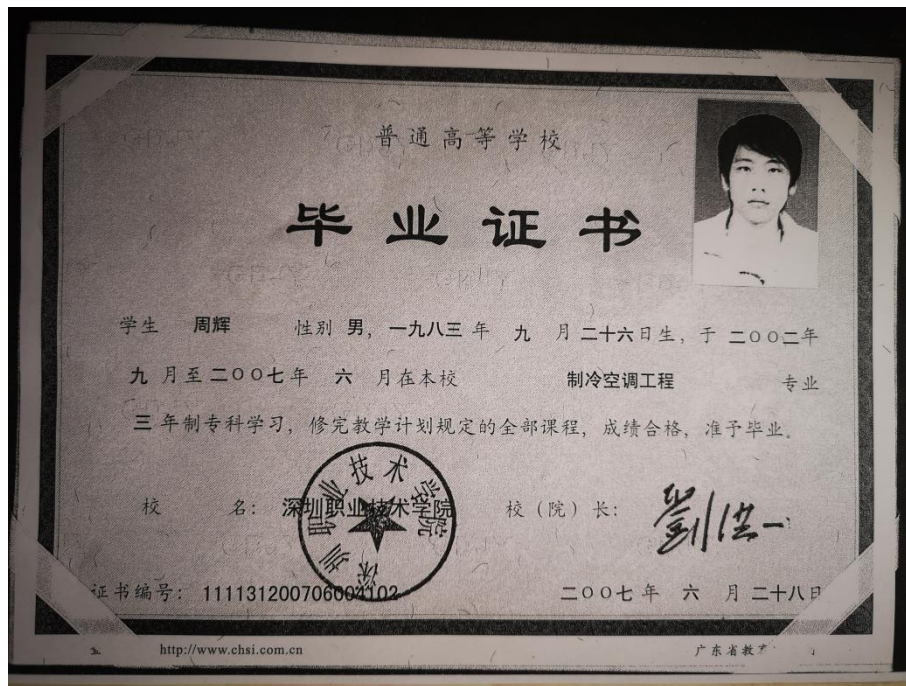 普通高等学校
毕业证书
学生 周辉 性别 男，一九八三 年 九 月 二十六日生，于 二00二年
九 月至 二00七年 六 月在本校 制冷空调工程 专业
三 年制专科学习，修完教学计划规定的全部课程，成绩合格，准予毕业。
校 名：深圳职业技术学院 校（院）长：劉洪一
深圳职业技术学院
证书编号：111131200706004102 二00七 年 六 月 二十八日
http://www.chsi.com.cn 广东省教